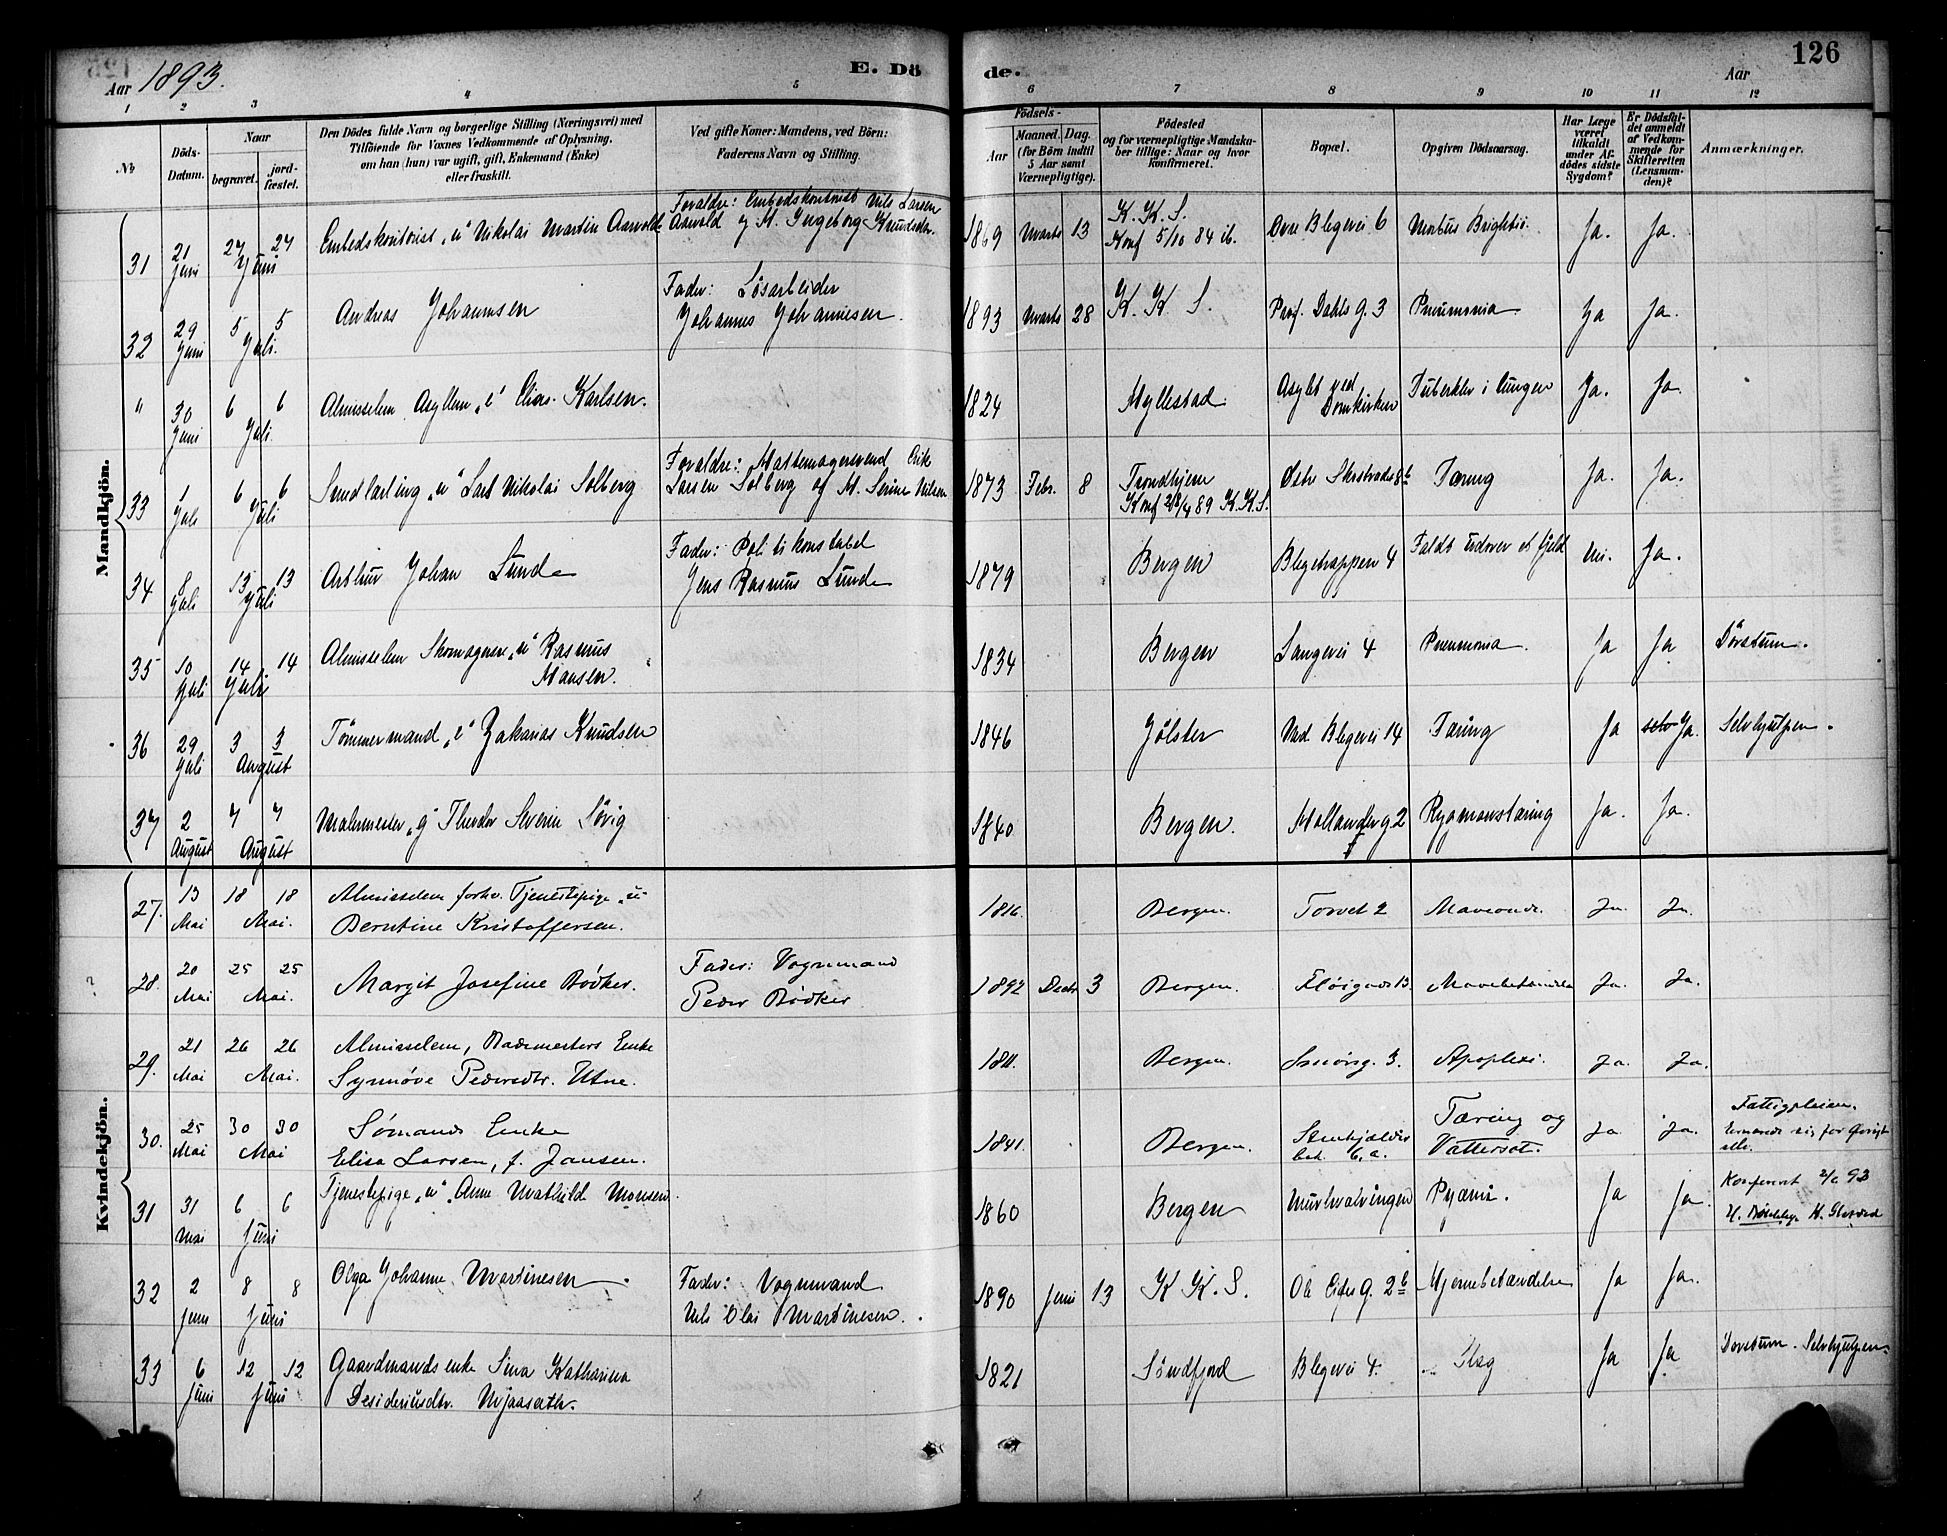 Aar 1893.
E. Dö
de.
Aar
126
1 2 3 4 5 6 7 8 9 10 11 12
No
Döds-Datum.
Naar
begravet.
jord-fæstet.
Den Dödes fulde Navn og borgerlige Stilling (Næringsvei) med
Tilföiende for Voxnes Vedkommende af Oplysning.
om han (hun) var ugift, gift, Enkemand (Enke)
eller fraskilt.
Ved gifte Koner: Mandens, ved Börn:
Faderens Navn og Stilling.
Födsels-
Aar
Maaned. Dag.
(for Börn indtil
5 Aar samt
Værnepligtige).
Födested
og for værnepligtige Mandska-
ber tillige: Naar og hvor
konfirmeret.
Bopæl.
Opgiven Dödsaarsag.
Har Læge
været
tilkaldt
under Af-
dödes sidste
Sygdom?
Er Dödsfal-
det anmeldt
af Vedkom-
mende for
Skifteretten
(Lensman-
den)?
Anmærkninger.
Mandkjön.
31 21 Juni 27 27 Juni Embedskontorist "u" Nikolai Martin Aarvold
Foraldre: Embedskontorist Nils Larsen
Aarvold og H. Ingeborg Knudsdtr.
1869 Marts 13 K. K. S.
Konf 5/10 84 ib. Øvre Blegevei 6 Morbus Brightii. Ja. Ja.
32 29 Juni 5 5 Juli. Andreas Johannesen
Fader: Løsarbeider
Johannes Johannesen.
1893 Marts 28 K. K. S. Prof. Dahls g. 3 Pneumonia Ja Ja.
" 30 Juni 6 6 Juli. Almisselem. Asyllem "e" Elias Karlsen.
1824 Hyllestad. Asylet ved
Domkirken Tuberkler i lungen Ja. Ja.
33 1 Juli 6 6 Juli Smedlærling "u" Lars Nikolai Solberg
Foraldre: Mattemagersvend Erik
Larsen Solberg og H. Serine Nilsen
1873 Febr. 8 Trondhjem
89 K. K. S. Tæring Ja. Ja.
34 8 Juli 13 13 Juli Arthur Johan Lunde
Fader: Politikonstabel
Jens Rasmus Lunde
1879 Bergen Blegetrappen 4 Faldt udover et fjeld Ja.
35 10 Juli 14 14 Juli Almisselem Skomager "u" Rasmus
Hansen.
1834 Bergen Langevei 4 Pneumonia. Ja Ja
36 29 Juli 3 3 August Tömmermand "e" Zakarias Knudsen
1846 Jölster Ved Blegevei 14 Tæring Ja selv Ja. Selvhjulpen.
37 2 August 7 7 August Malermester "g" Theodor Severin Sörig
1840 Bergen. Hollænderg 2 Rygmarvstæring Ja. Ja.
Kvindekjön.
27. 13 Mai 18 18 Mai. Almisselem forhv. Tjenestepige "u"
Berntine Kristoffersen.
1816. Bergen. Torvet 2 Maveonde. Ja. Ja.
28. 20 Mai 25 25 Mai. Margit Josefine Bödker.
Fader: Vognmand
Peder Bödker
1892 Decbr 3 Bergen. Fløigade 13. Mavebetændelse Ja. Ja.
29. 21 Mai 26 26 Mai. Almisselem, Bademesters Enke
Synnöve Pedersdtr. Utne.
1811. Bergen. Smörsg. 3. Apoplexi. Ja. Ja.
30. 25 Mai 30 30 Mai Sömands Enke
Elisa Larsen, f. Jansen.
1841. Bergen. Tæring og
Vattersot. Ja. Ja. Fattigpleien.
31 31 Mai 6 6 Juni Tjenestepige "u" Anne Mathilde Monsen
1860 Bergen Murhvalvingen Pyæmi. Ja Ja. Konfereret 93
32 2 Juni 8 8 Juni Olga Johanne Martinesen.
Fader: Vognmand
Nils Olai Martinesen.
1890 Juni 13 K. K. S. Hjernebetændelse Ja Ja.
33 6 Juni 12 12 Juni Gaardmandsenke Sina Katharina
Desideriusdtr. Mjaaseth.
1821 Söndfjord Blegevei 4. Slag Ja Ja Selvhjulpen.